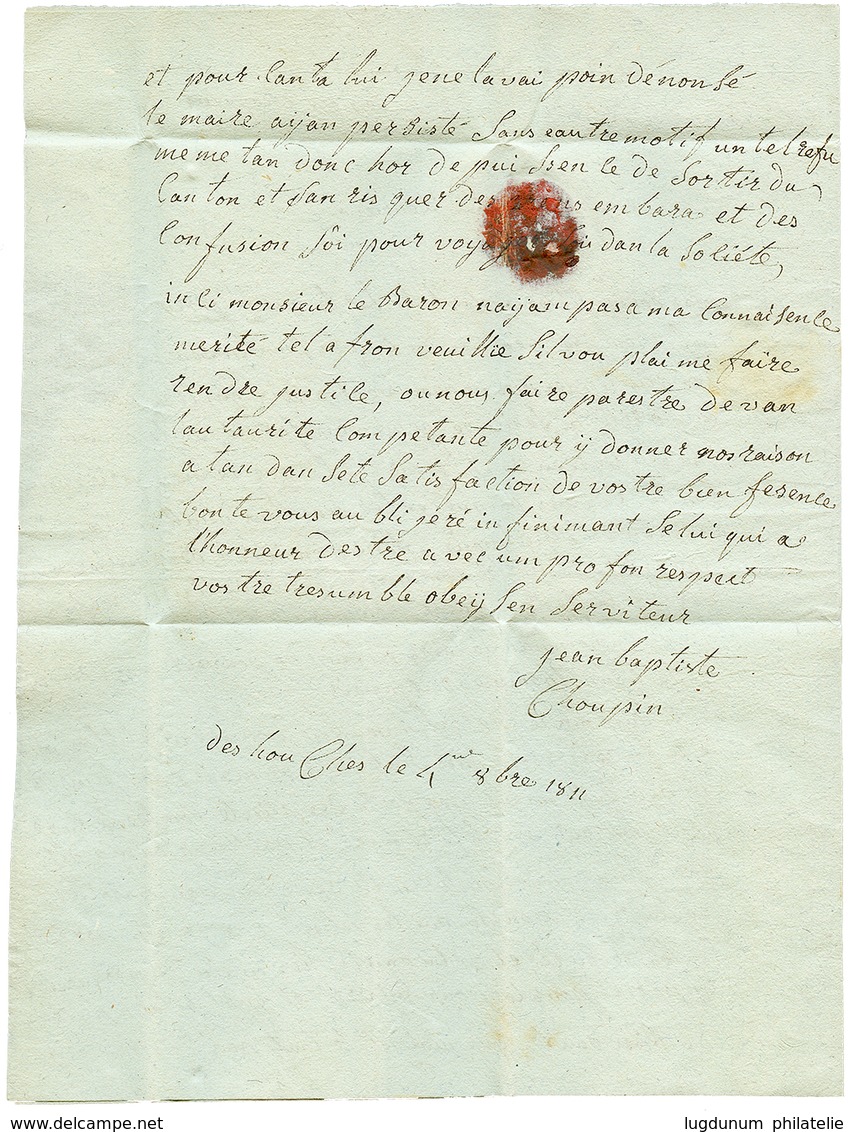 et pour Canta lui jene lavai poin dénonsé
le maire aijan persisté Sans eautre motif un tel refu
me metan donc hor de pui Ssen ce de Sortir du
Canton et San ris quer des embara et des
Confusion Sôi pour dan la Soliéte,
in Ci monsieur le Baron naijam pas a ma Connaisence
merité tel a fron veuillie Silvou plai me faire
rendre justice, ou nous faire parestre devan
lautaurite Competante pour ÿ donner nos raison
a tan dan Sete Satisfaction de vostre bien fesence
bonte vous au bli jeré in finimant Selui qui a
l'honneur destre avec um pro fon respect
vostre tresumble obeÿ Sen Serviteur
jean baptiste
Choupin
des hou Ches le 4me 8bre 1811
www.delcampe.net
lugdunum philatelie